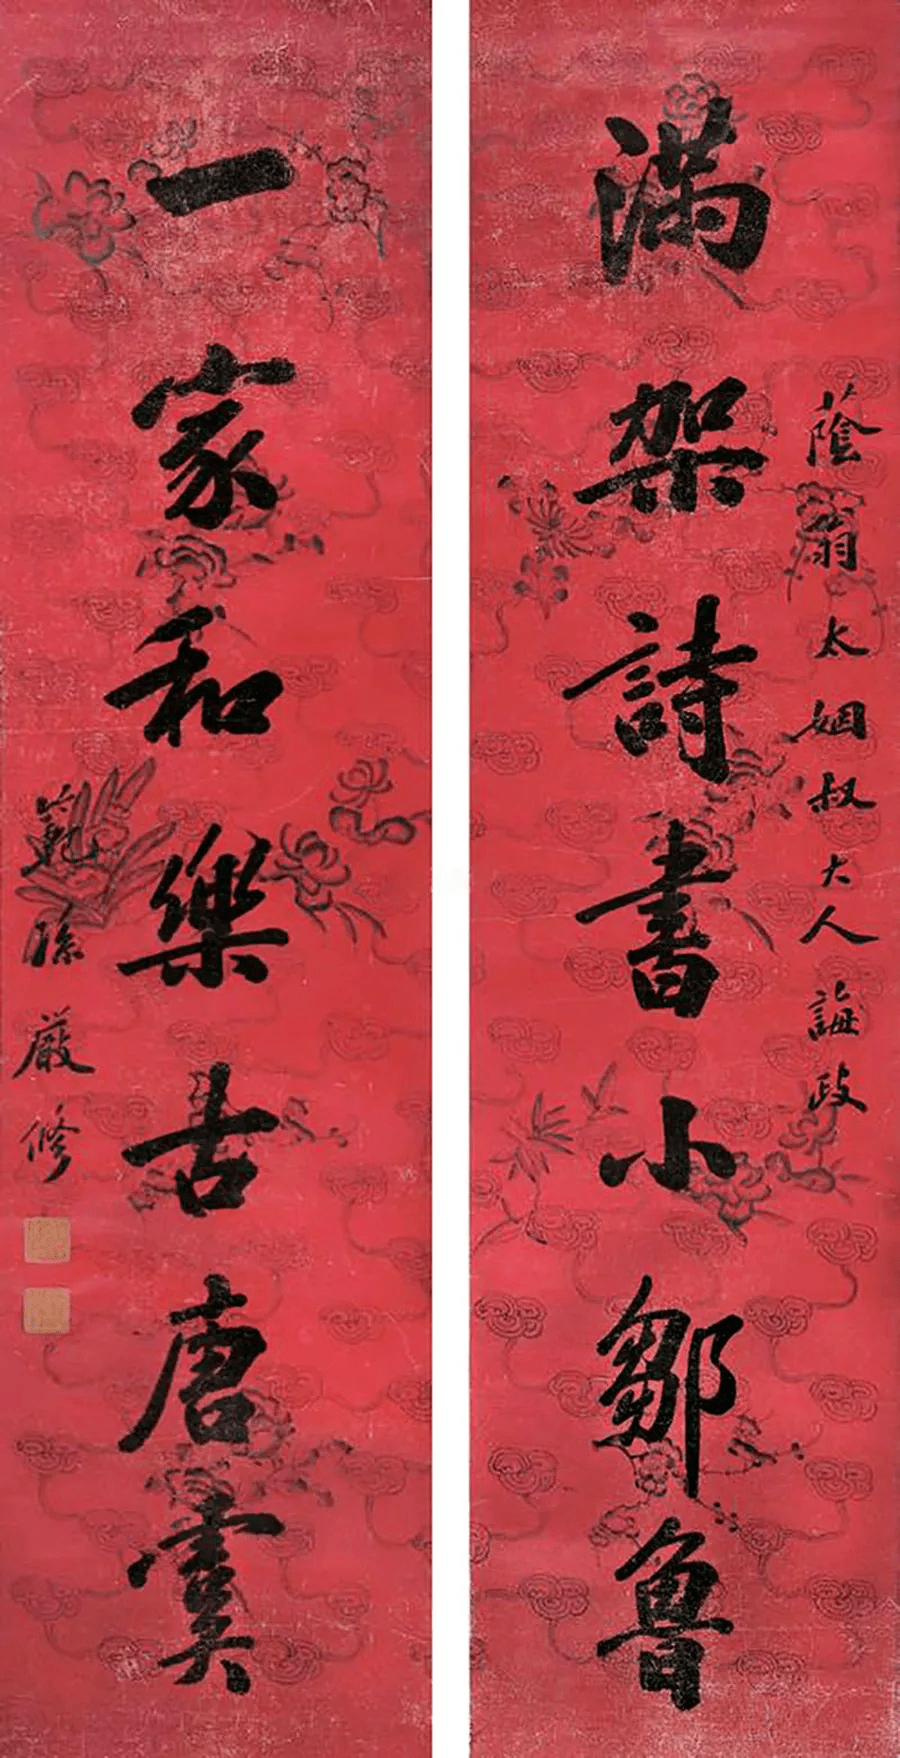 蔭翁太姻叔大人誨政
滿架詩書小鄒魯
一家和樂古唐虞
範孫嚴修